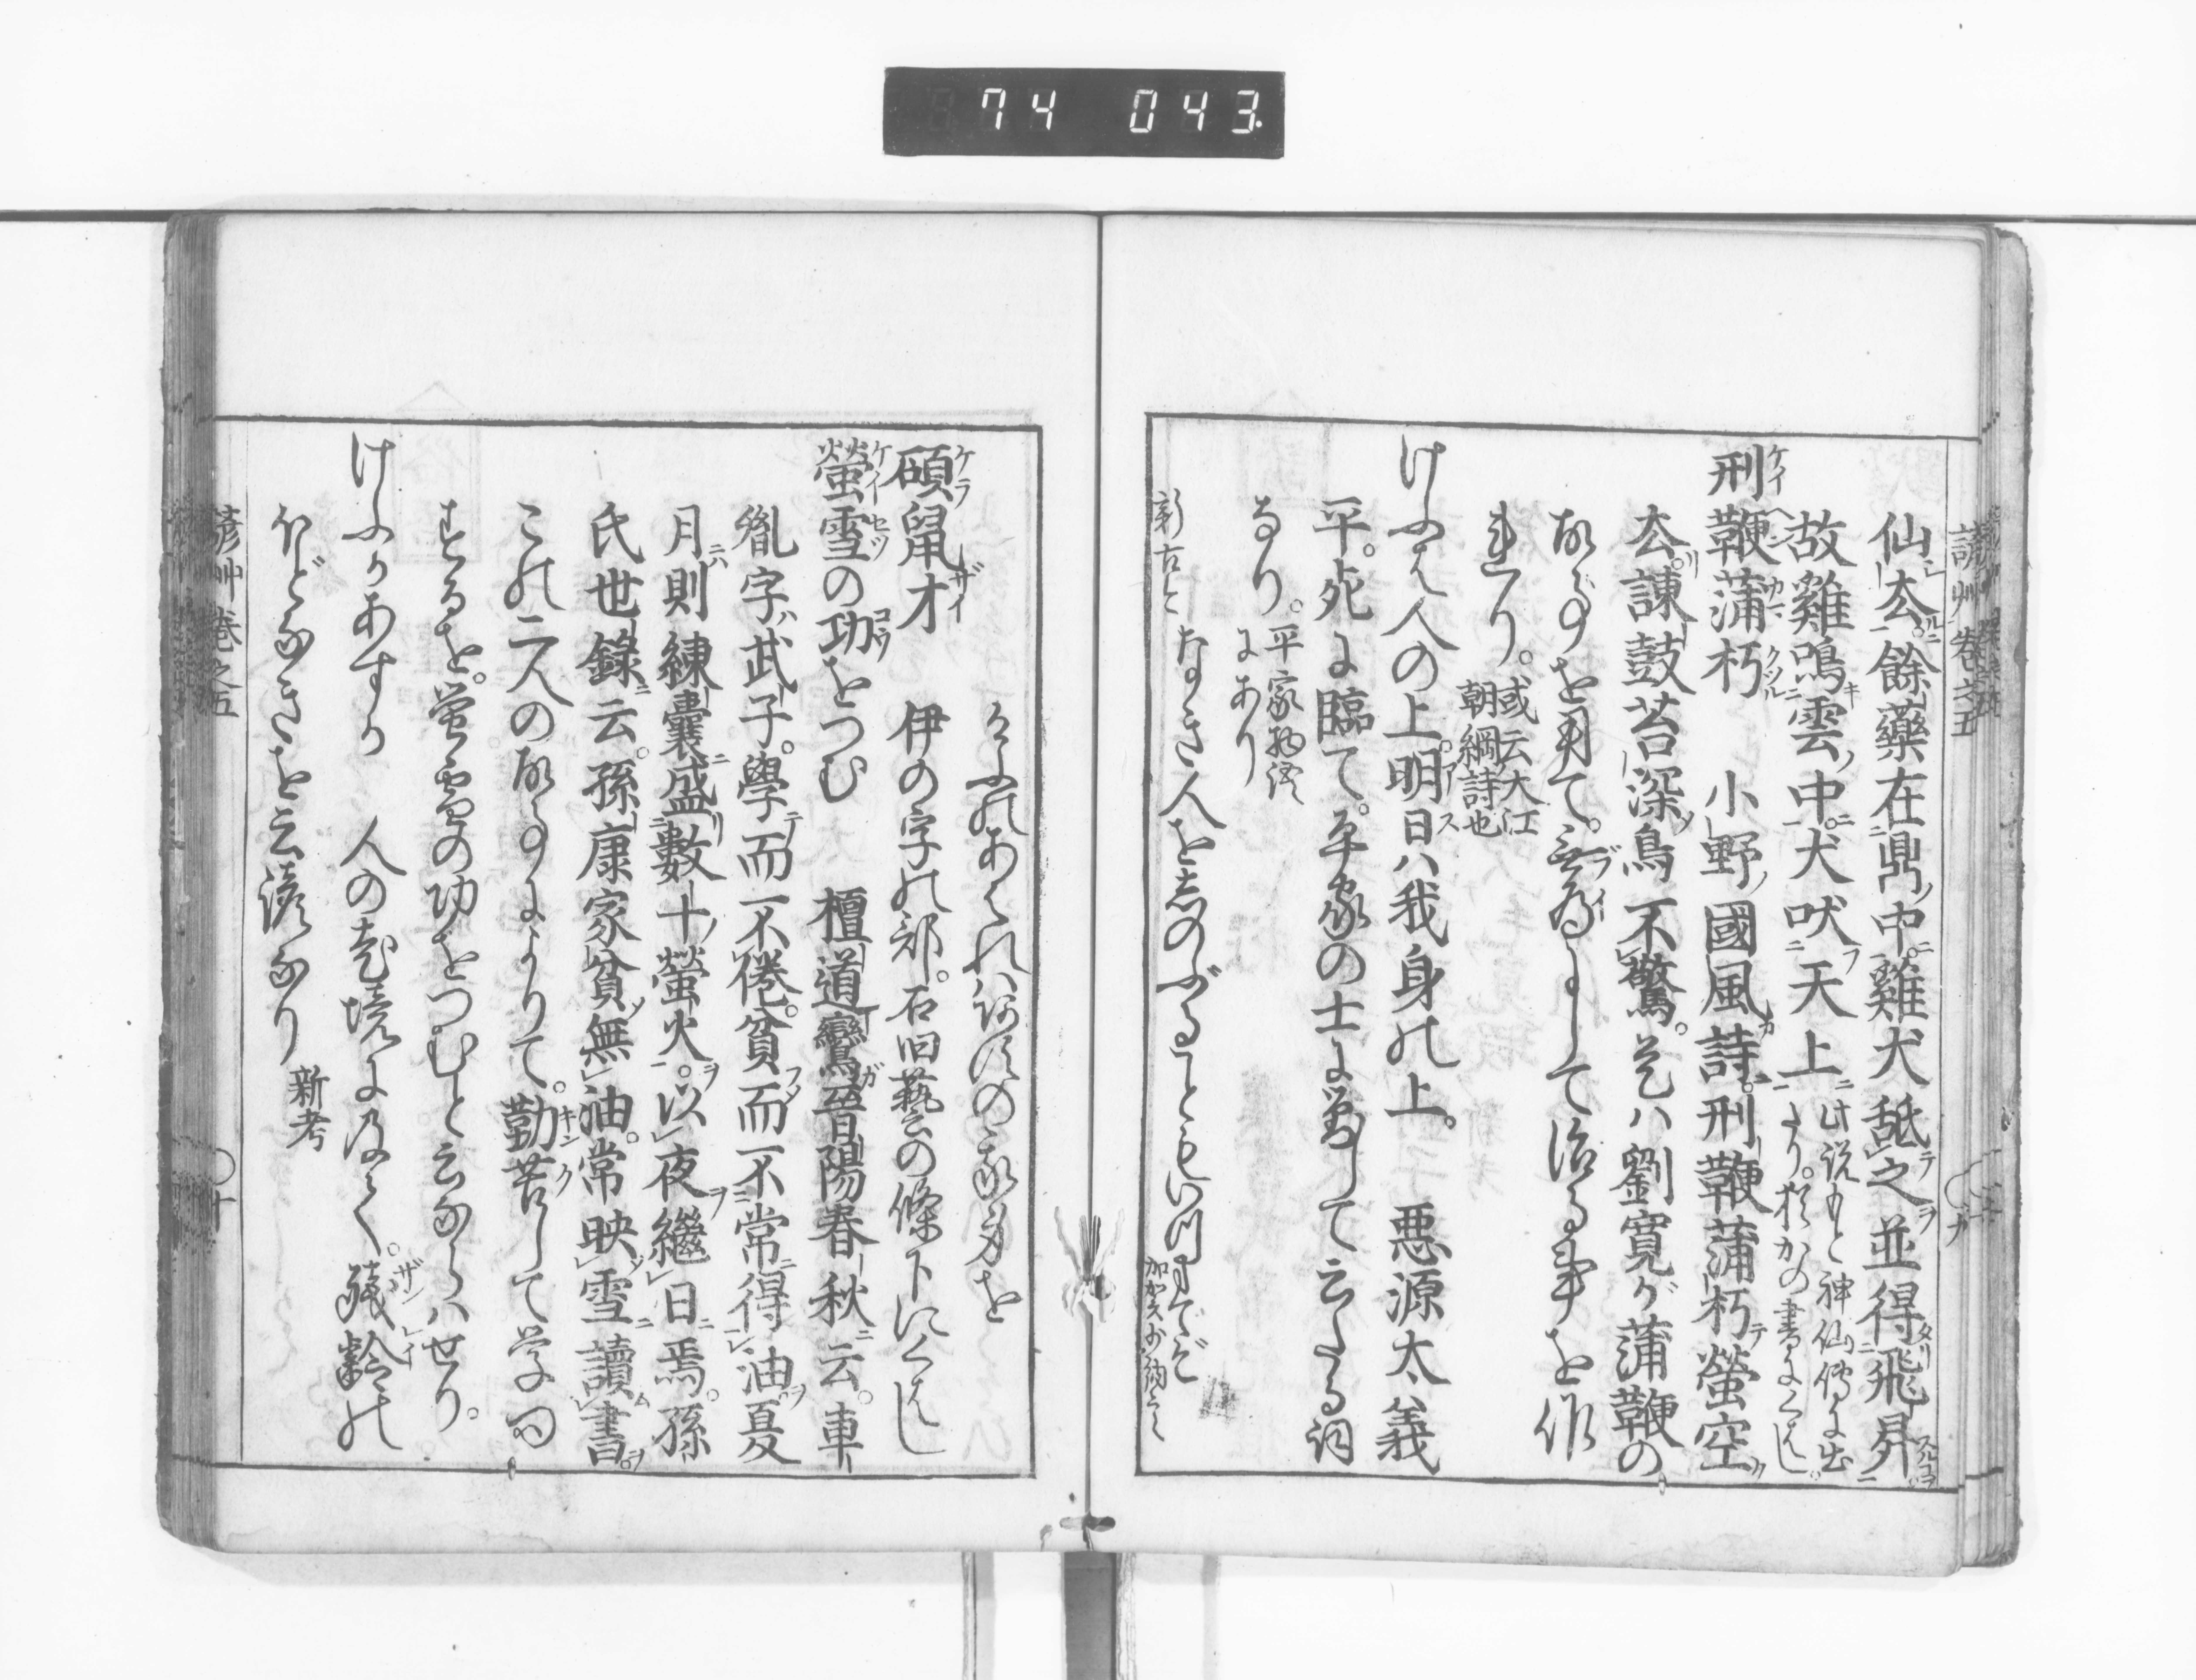 74 043
諺艸卷之五
仙去餘藥在鼎中雞犬舐之並得飛昇
故雞鳴雲中犬吠天上此説もと神仙傳に出
たり。猶かの書にくはし
刑鞭蒲朽 小野國風詩。刑鞭蒲朽螢空
去。諫鼓苔深鳥不驚。是ハ劉寛ガ蒲鞭の
故事を用て。無為にして治る事を作
れり。或云大江朝綱詩也
けふは人の上。明日ハ我身の上。 悪源太義
平。死に臨て。平家の士に對して云たる詞
なり。平家物語にあり
新古今 なき人をしのぶることもいつまでぞ
けふのあはれハあすの我身を 加賀少納言
碩鼠才 伊の字の部。石旧藝の條下にくはし
螢雪の功をつむ 檀道鸞晉陽春秋云。車
胤字武子。學而不倦。貧而不常得油夏
月則練囊盛數十螢火。以夜繼日焉。孫
氏世錄云。孫康家貧無油。常映雪讀書。
この二人の故事によりて。勤苦して学問
するを。蛍雪の功をつむと云ならハせり。
けふかあすか 人の老境に及て。殘齡の
ほどなきを云諺なり 新考
諺艸卷之五
十